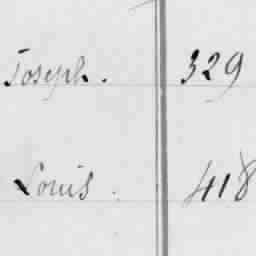 Joseph. 329
Louis. 418